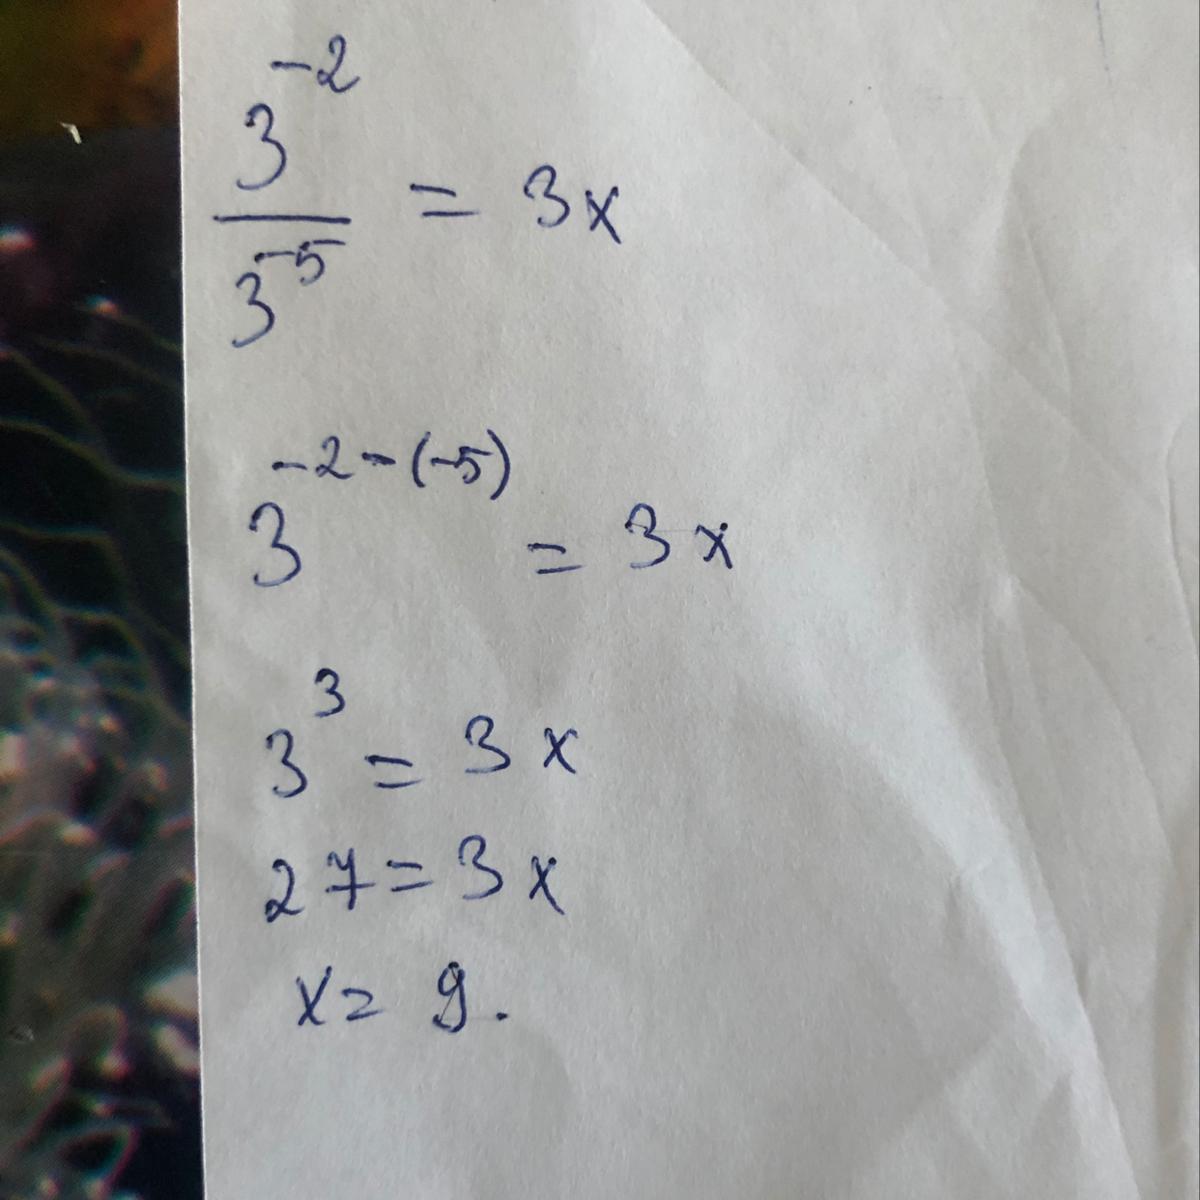 3^-2 / 3^-5 = 3x
3^-2-(-5) = 3x
3^3 = 3x
27 = 3x
x = 9.